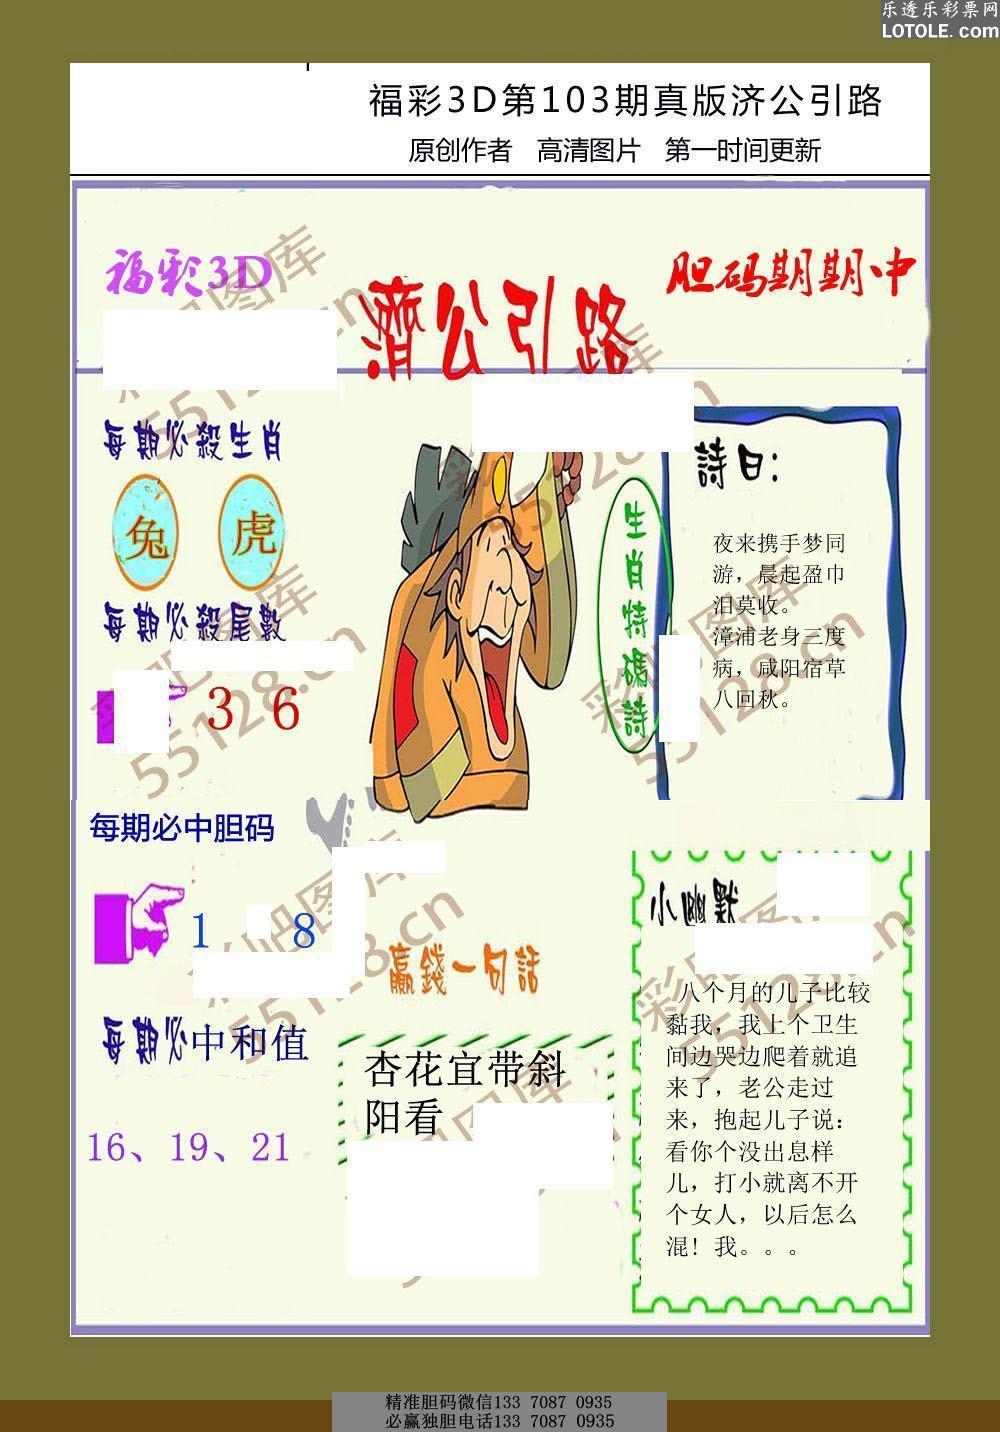 乐透乐彩票网
LOTOLE.com
福彩3D第103期真版济公引路
原创作者 高清图片 第一时间更新
福彩3D
濟公引路
胆码期期中
每期必殺生肖
兔 虎
每期必殺尾數
3 6
生肖特碼詩
詩曰：
夜来携手梦同
游，晨起盈巾
泪莫收。
漳浦老身三度
病，咸阳宿草
八回秋。
每期必中胆码
1 8
每期必中和值
16、19、21
赢錢一句話
杏花宜带斜
阳看
小幽默
八个月的儿子比较
黏我，我上个卫生
间边哭边爬着就追
来了，老公走过
来，抱起儿子说：
看你个没出息样
儿，打小就离不开
个女人，以后怎么
混！我。。。
彩吧图库
55128.cn
彩吧图库
55128.cn
彩吧图库
55128.cn
精准胆码微信133 7087 0935
必赢独胆电话133 7087 0935